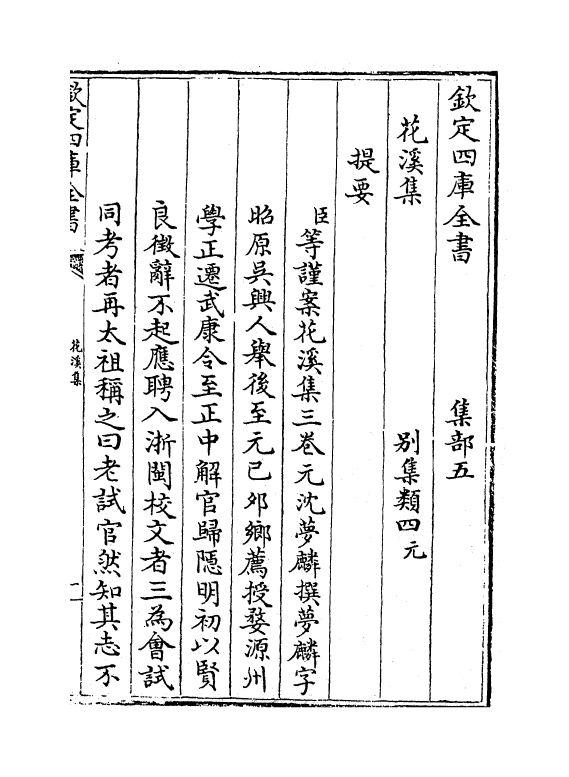 欽定四庫全書　集部五
花溪集　別集類四元
提要
臣等謹案花溪集三卷元沈夢麟撰夢麟字
昭原吳興人舉後至元己夘鄉薦授婺源州
學正遷武康令至正中解官歸隱明初以賢
良徴辭不起應聘入浙閩校文者三為會試
同考者再太祖稱之曰老試官然知其志不
欽定四庫全書
花溪集
一